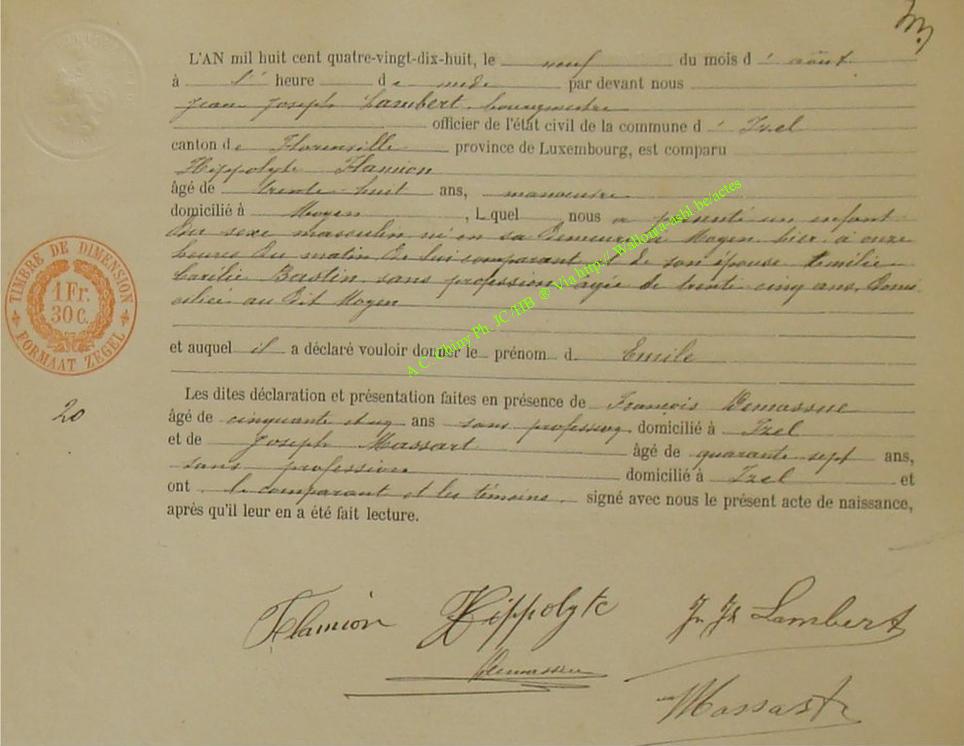 L'AN mil huit cent quatre-vingt-dix-huit, le neuf du mois d' août
à l' heure de midi par devant nous
Jean Joseph Lambert, bourgmestre
officier de l'état civil de la commune d' Izel
canton de Florenville province de Luxembourg, est comparu
Hippolyte Flamion
âgé de trente-huit ans, manoeuvre
domicilié à Moyen, Lequel nous a présenté un enfant
du sexe masculin né en sa demeure à Moyen hier à onze
heures du matin de lui comparant et de son épouse Emilie
Bastin sans profession, agée de trente cinq ans, domi
ciliée au dit Moyen
et auquel il a déclaré vouloir donner le prénom d. Emile
Les dites déclaration et présentation faites en présence de François Demassue
âgé de cinquante et un ans sans profession, domicilié à Izel
et de Joseph Massart âgé de quarante sept ans,
sans profession domicilié à Izel et
ont le comparant et les témoins signé avec nous le présent acte de naissance,
après qu'il leur en a été fait lecture.
TIMBRE DE DIMENSION
1 Fr.
30 C.
FORMAAT ZEGEL
20
A.C. Chiny Ph JC /HB @ Via http:// Wallonia-asbl be/actes
Flamion Hippolyte Jn Jh Lambert
Demassue
Massart